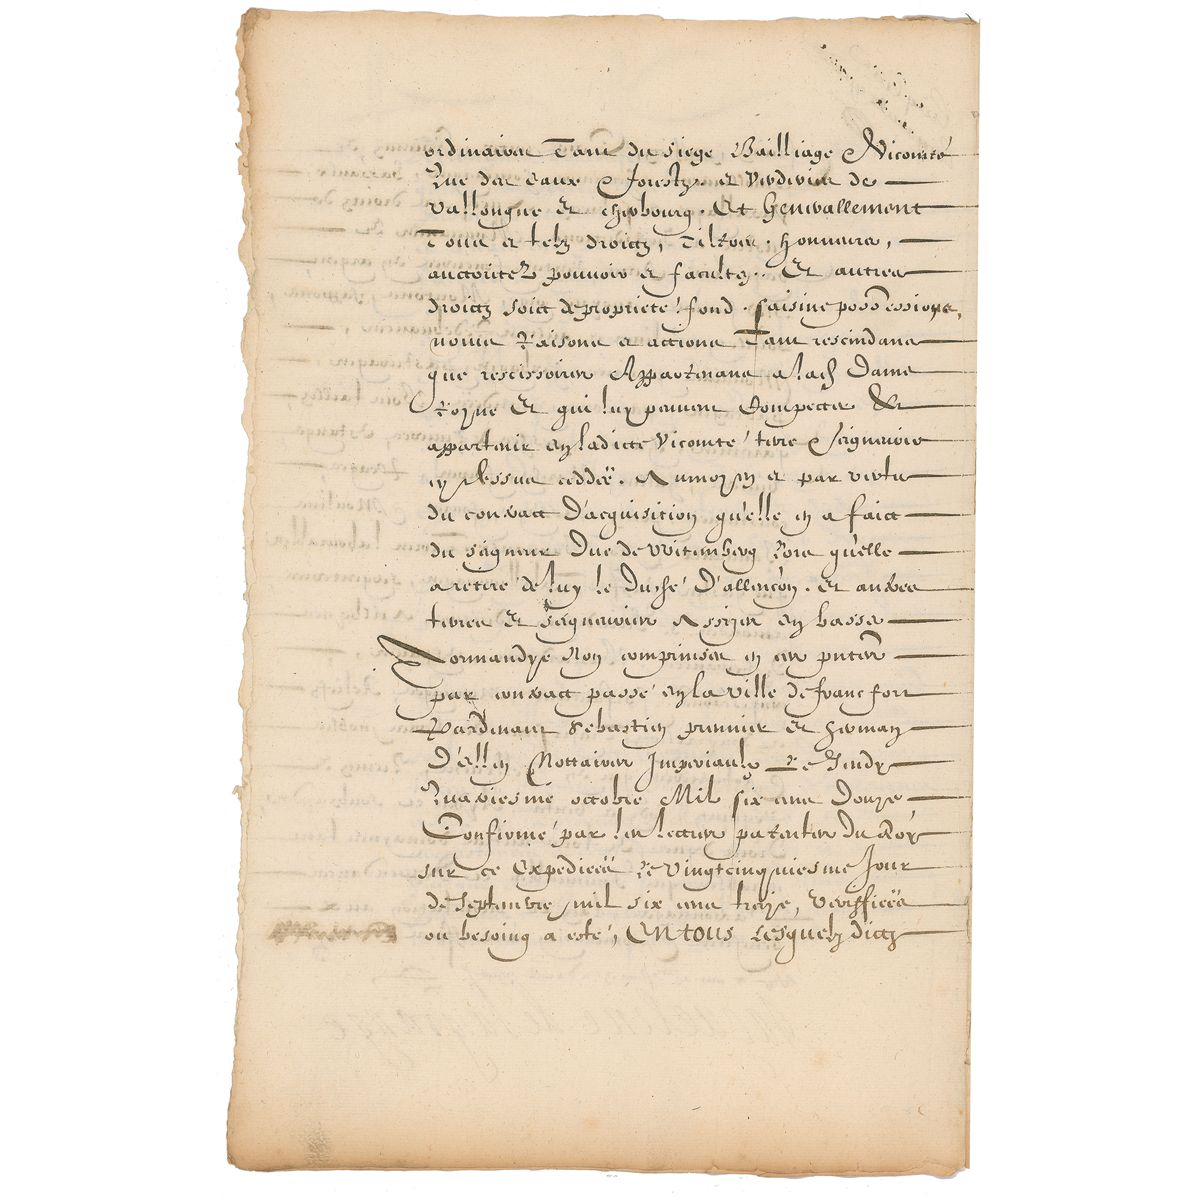 ordinaires Tant du siege Bailliage Vicomté
Que des eaux & forestz et Verderies de
Vallongne et cherbourg. Et Generallement
Tous et telz droictz, Tiltres. honneurs,
auctoritez pouvoir et facultez. Et autres
droictz soict de propriete fond. saisine possessions,
noms Raisons et actions Tant rescindans
que rescissoires Appartenans a lad. Dame
Royne Et qui luy peuvent Compecter &
appartenir en ladicte Vicomté terre & seigneurie
cy dessus ceddés. Au moyen et par vertu
du contract D'acquisition qu'elle en a faict
du seigneur Duc de Witemberg Lors qu'elle
a retiré de luy le Duché D'allençon. et autres
terres et seigneuries Assizes en basse
Normandye Non comprinses en ces putes
par contract passé en la ville de francfort
Pardevant Sebastien prunier et herman
D'ellin Nottaires Imperiaulx Le Jeudy
Quatriesme octobre Mil six cens Douze
Confirmé par les lectres patentes du Roy
sur ce Expediees Le vingtcinquiesme Jour
de Septembre mil six cens treize, Veriffiees
ou besoing a esté, EN tous Lesquelz dictz